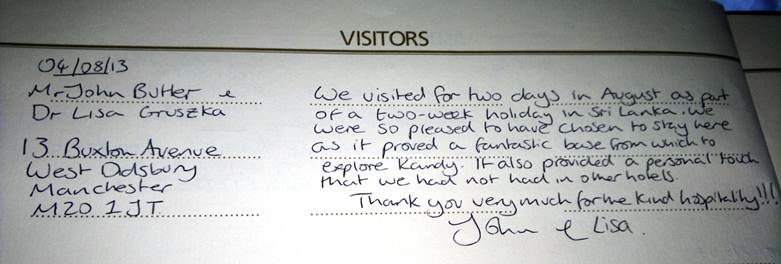 VISITORS
04/08/13
Mr John Butler &
Dr Lisa Gruszka
13 Buxton Avenue
West Didsbury
Manchester
M20 1JT
We visited for two days in August as part
of a two-week holiday in Sri Lanka. We
were so pleased to have chosen to stay here
as it proved a fantastic base from which to
explore Kandy. It also provided a personal touch
that we had not had in other hotels
Thank you very much for the kind hospitality!!!
John & Lisa.